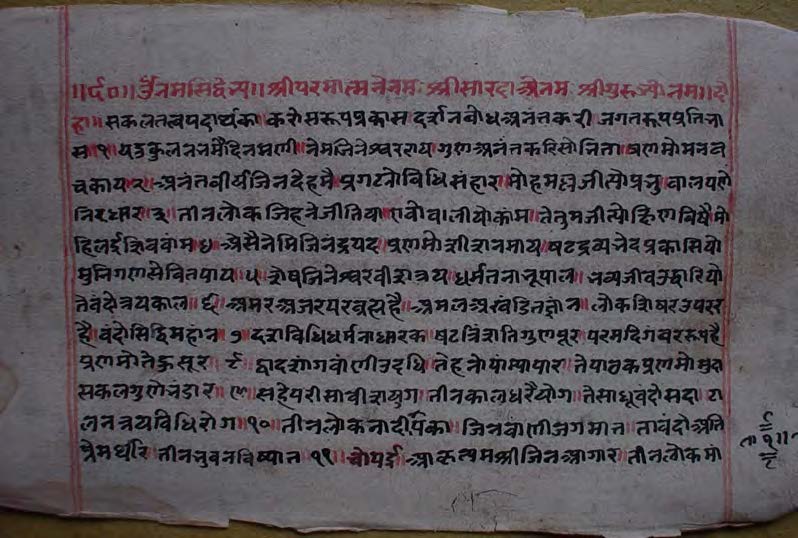 ॥र्द०॥ उँनमसिद्वेभ्य॥ श्रीपरमात्मनेनम श्रीसारदाश्रेनम श्रीगुरूभ्योनम॥ दो
हा॥ सकलतत्वपदार्थका करोसरूपप्रकास दर्शनबोधअनंतकरी जगतरूपप्रतिभा
स १ यडकुलननमैदिनमणी नेमजिनेश्वरराय गुणअनंतकरिसोनिता प्रणमोमनवच
चकाय २ अनंतवीर्यजिनदेहमै प्रगटनोविधिसंहार मोहमल्लजीत्योप्रभु बालपणे
निरधार ३ तीनलोकजिहनेजीतिया तेतुमजीत्यो
हिलई ४ श्रेसैनेमिजिनंद्रपद प्रणमो षटद्रव्यनेदप्रकासियो
मुनिगणसेवितपाय ५ शेषजिनेश्वरवीशत्रय धर्मतनाभूपाल भव्यजीवउद्वारियो
तेवंदोत्रयकाल ६ अमरअजरपरब्रह्महै अमलअखंडितज्ञांन लोकशिषरउपरर
है वंदोसिद्धिमहांन ७ दशविधिधर्मनाधारक षटत्रिंशतिगुणपूर परमदिगंबररूपहै
प्रणमोतेसूर ८ द्वादशांगवांणीउदधि तेहनोपांम्यापार तेपाठकप्रणमो
सकलगुणेभंडार ९ सहेपरीसाबीशयुग तीनकालधरैयोग तेसाधूवंदोसदा टा
लनत्रयविधिरोग १० तीनलोकनादीपिका जिनवांणीजगमात तावंदोअति
प्रेमधरि तीनभुवनविष्यात ११ चोपई आकृत्यमश्रीजिनआगार तीनलोकमा